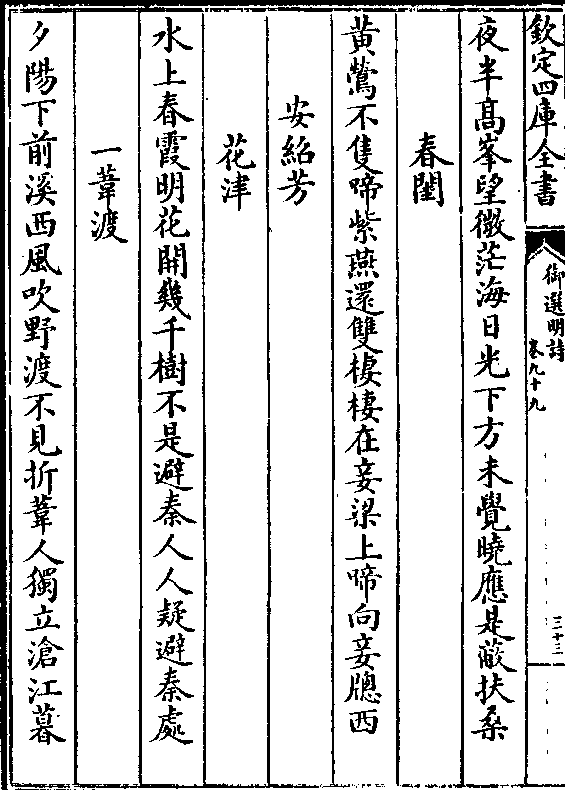 欽定四庫全書
御選明詩
卷九十九
三十三
夜半髙峯望微茫海日光下方未覺曉應是蔽扶桑
春閨
黄鶯不隻啼紫燕還雙棲棲在妾梁上啼向妾牕西
安紹芳
花津
水上春霞明花開幾千樹不是避秦人人疑避秦處
一葦渡
夕陽下前溪西風吹野渡不見折葦人獨立滄江暮